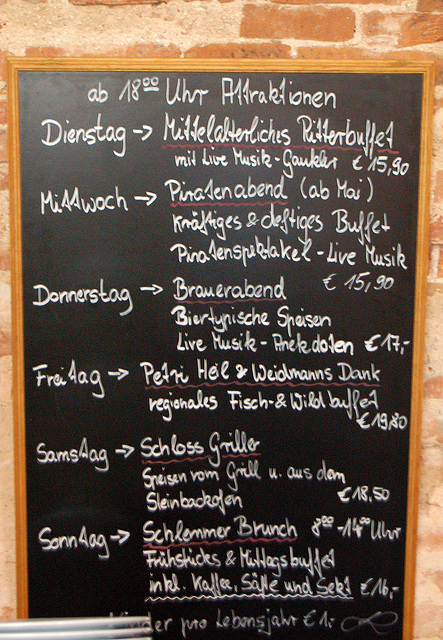 ab 18⁰⁰ Uhr Attraktionen
Dienstag → Mittelalterliches Ritterbuffet
mit Live Musik - Gaukler € 15,90
Mittwoch → Piratenabend (ab Mai)
Kräftiges & deftiges Buffet
Piratenspektakel - Live Musik
€ 15,90
Donnerstag → Brauerabend
Biertypische Speisen
Live Musik - Anekdoten € 17,-
Freitag → Petri Heil & Weidmanns Dank
regionales Fisch- & Wildbuffet
€ 19,80
Samstag → Schloss Griller
Speisen vom Grill u. aus dem
Steinbackofen € 18,50
Sonntag → Schlemmer Brunch 8⁰⁰ - 14⁰⁰ Uhr
Frühstücks & Mittagsbuffet
inkl. Kaffee, Säfte und Sekt € 16,-
Kinder pro Lebensjahr € 1,-